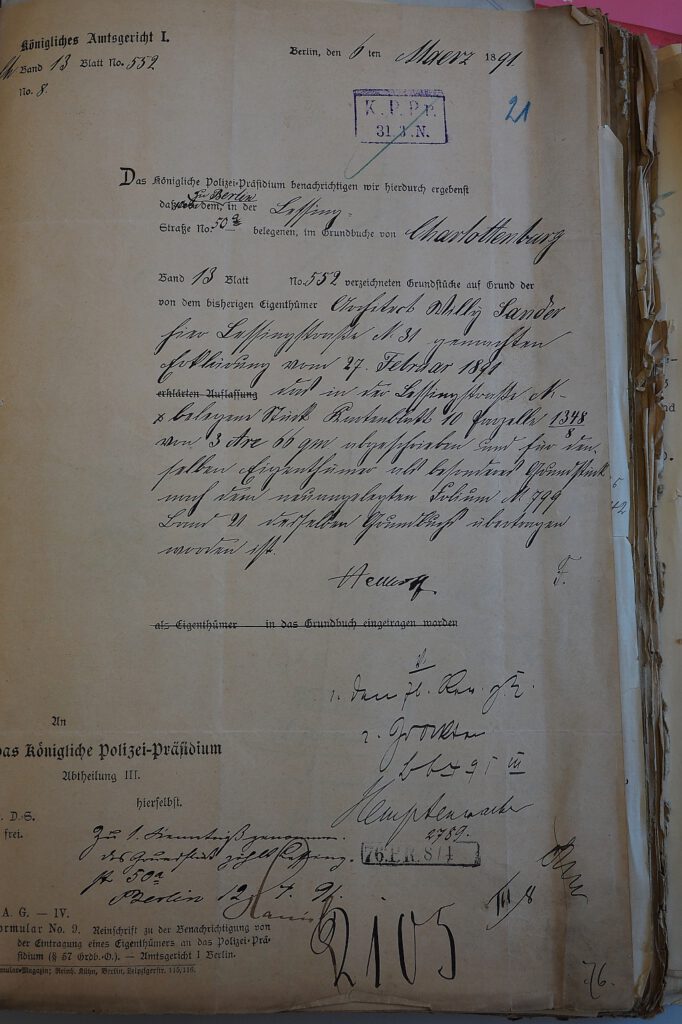 Königliches Amtsgericht I.
Band 13 Blatt No. 552
No. 8.
Berlin, den 6 ten Maerz 1891
K. P. P. P.
31. N.
21
Das Königliche Polizei-Präsidium benachrichtigen wir hierdurch ergebenst
zu Berlin
daß dem, in der Lessing-
Straße No. 50 a belegenen, im Grundbuche von Charlottenburg
Band 13 Blatt No. 552 verzeichneten Grundstücke auf Grund der
von dem bisherigen Eigenthümer Architect Willy Sander
hier Lessingstraße N. 31 gemachten
Erklärung vom 27. Februar 1891
erklärten Auflassung das in der Lessingstraße N-
belegene Stück Kartenblatt 10 Parzelle 1348/8
von 3 Are 66 qm abgeschrieben und für den-
selben Eigenthümer als besonderes Grundstück
nach dem neuangelegten Folium N 799
Band 21 desselben Grundbuchs übertragen
worden ist.
F.
als Eigenthümer in das Grundbuch eingetragen worden
1. den
2.
An
das Königliche Polizei-Präsidium
Abtheilung III.
hierselbst.
D.-S.
frei.
2789.
76. P.R. 8/4
Zu 1. Kenntniß genommen.
das Grundstück zählt Lessing-
str 50a
Berlin 12/4. 91.
III/8
2105
A. G. — IV.
ormular No. 9. Reinschrift zu der Benachrichtigung von
der Eintragung eines Eigenthümers an das Polizei-Prä-
sidium (§ 57 Grdb.-O.). — Amtsgericht I Berlin.
mular-Magazin; Reinh. Kühn, Berlin, Leipzigerstr. 115/116.
76.